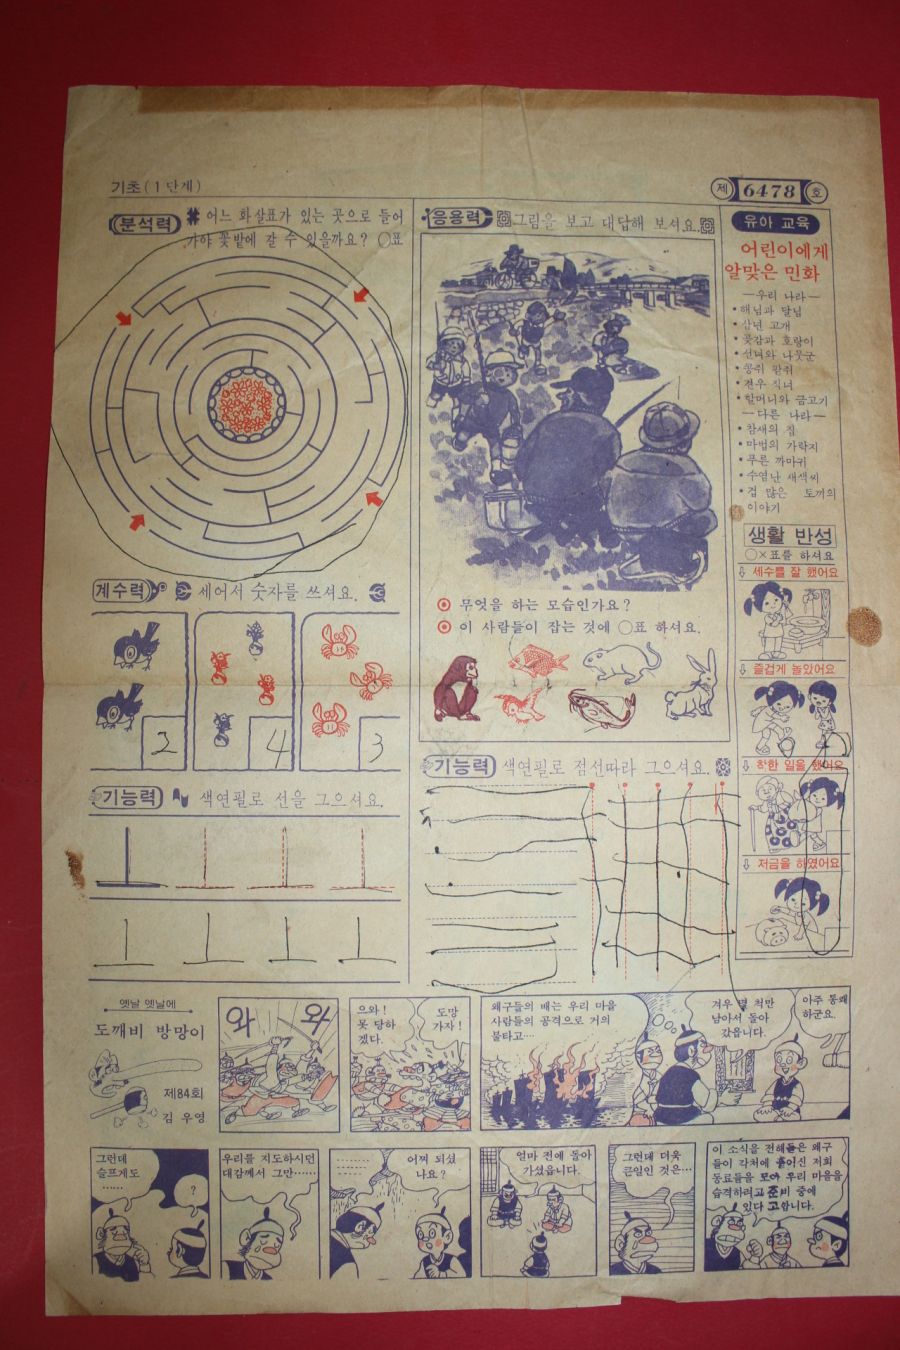 기초(1단계)
제 6478 호
분석력 어느 화살표가 있는 곳으로 들어
가야 꽃밭에 갈 수 있을까요? ○표
응용력 그림을 보고 대답해 보셔요.
무엇을 하는 모습인가요?
이 사람들이 잡는 것에 ○표 하셔요.
유아 교육
어린이에게
알맞은 민화
—우리 나라—
•해님과 달님
•삼년 고개
•곶감과 호랑이
•선녀와 나뭇군
•콩쥐 팥쥐
•견우 직녀
•할머니와 금고기
—다른 나라—
•참새의 집
•마법의 가락지
•푸른 까마귀
•수염난 새색씨
•겁 많은 토끼의
이야기
생활 반성
○×표를 하셔요
세수를 잘 했어요
즐겁게 놀았어요
착한 일을 했어요
저금을 하였어요
계수력 세어서 숫자를 쓰셔요.
2 4 3
기능력 색연필로 선을 그으셔요.
기능력 색연필로 점선따라 그으셔요.
옛날 옛날에
도깨비 방망이
제84회
김 우영
와 와
으와!
못 당하
겠다.
도망
가자!
왜구들의 배는 우리 마을
사람들의 공격으로 거의
불타고…
겨우 몇 척만
남아서 돌아
갔읍니다.
아주 통쾌
하군요.
그런데
슬프게도
……
?
우리를 지도하시던
대감께서 그만……
어찌 되셨
나요?
얼마 전에 돌아
가셨읍니다.
그런데 더욱
큰일인 것은…
이 소식을 전해들은 왜구
들이 각처에 흩어진 저희
동료들을 모아 우리 마을을
습격하려고 준비 중에
있다 고합니다.